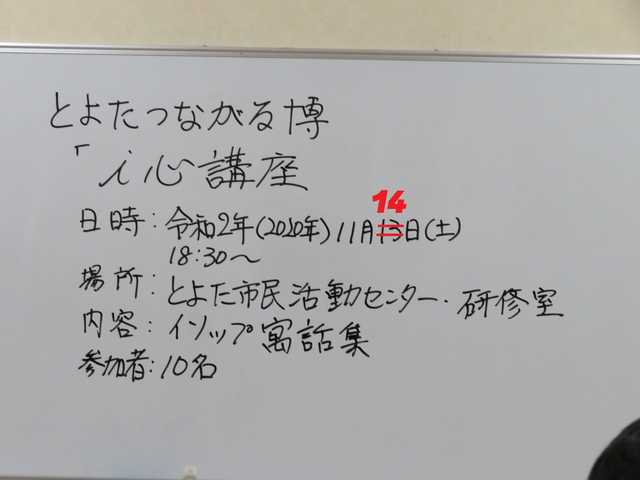 とよたつながる博
「i心講座
日時：令和2年(2020年)11月13日(土)
14
18:30～
場所：とよた市民活動センター・研修室
内容：イソップ寓話集
参加者：10名